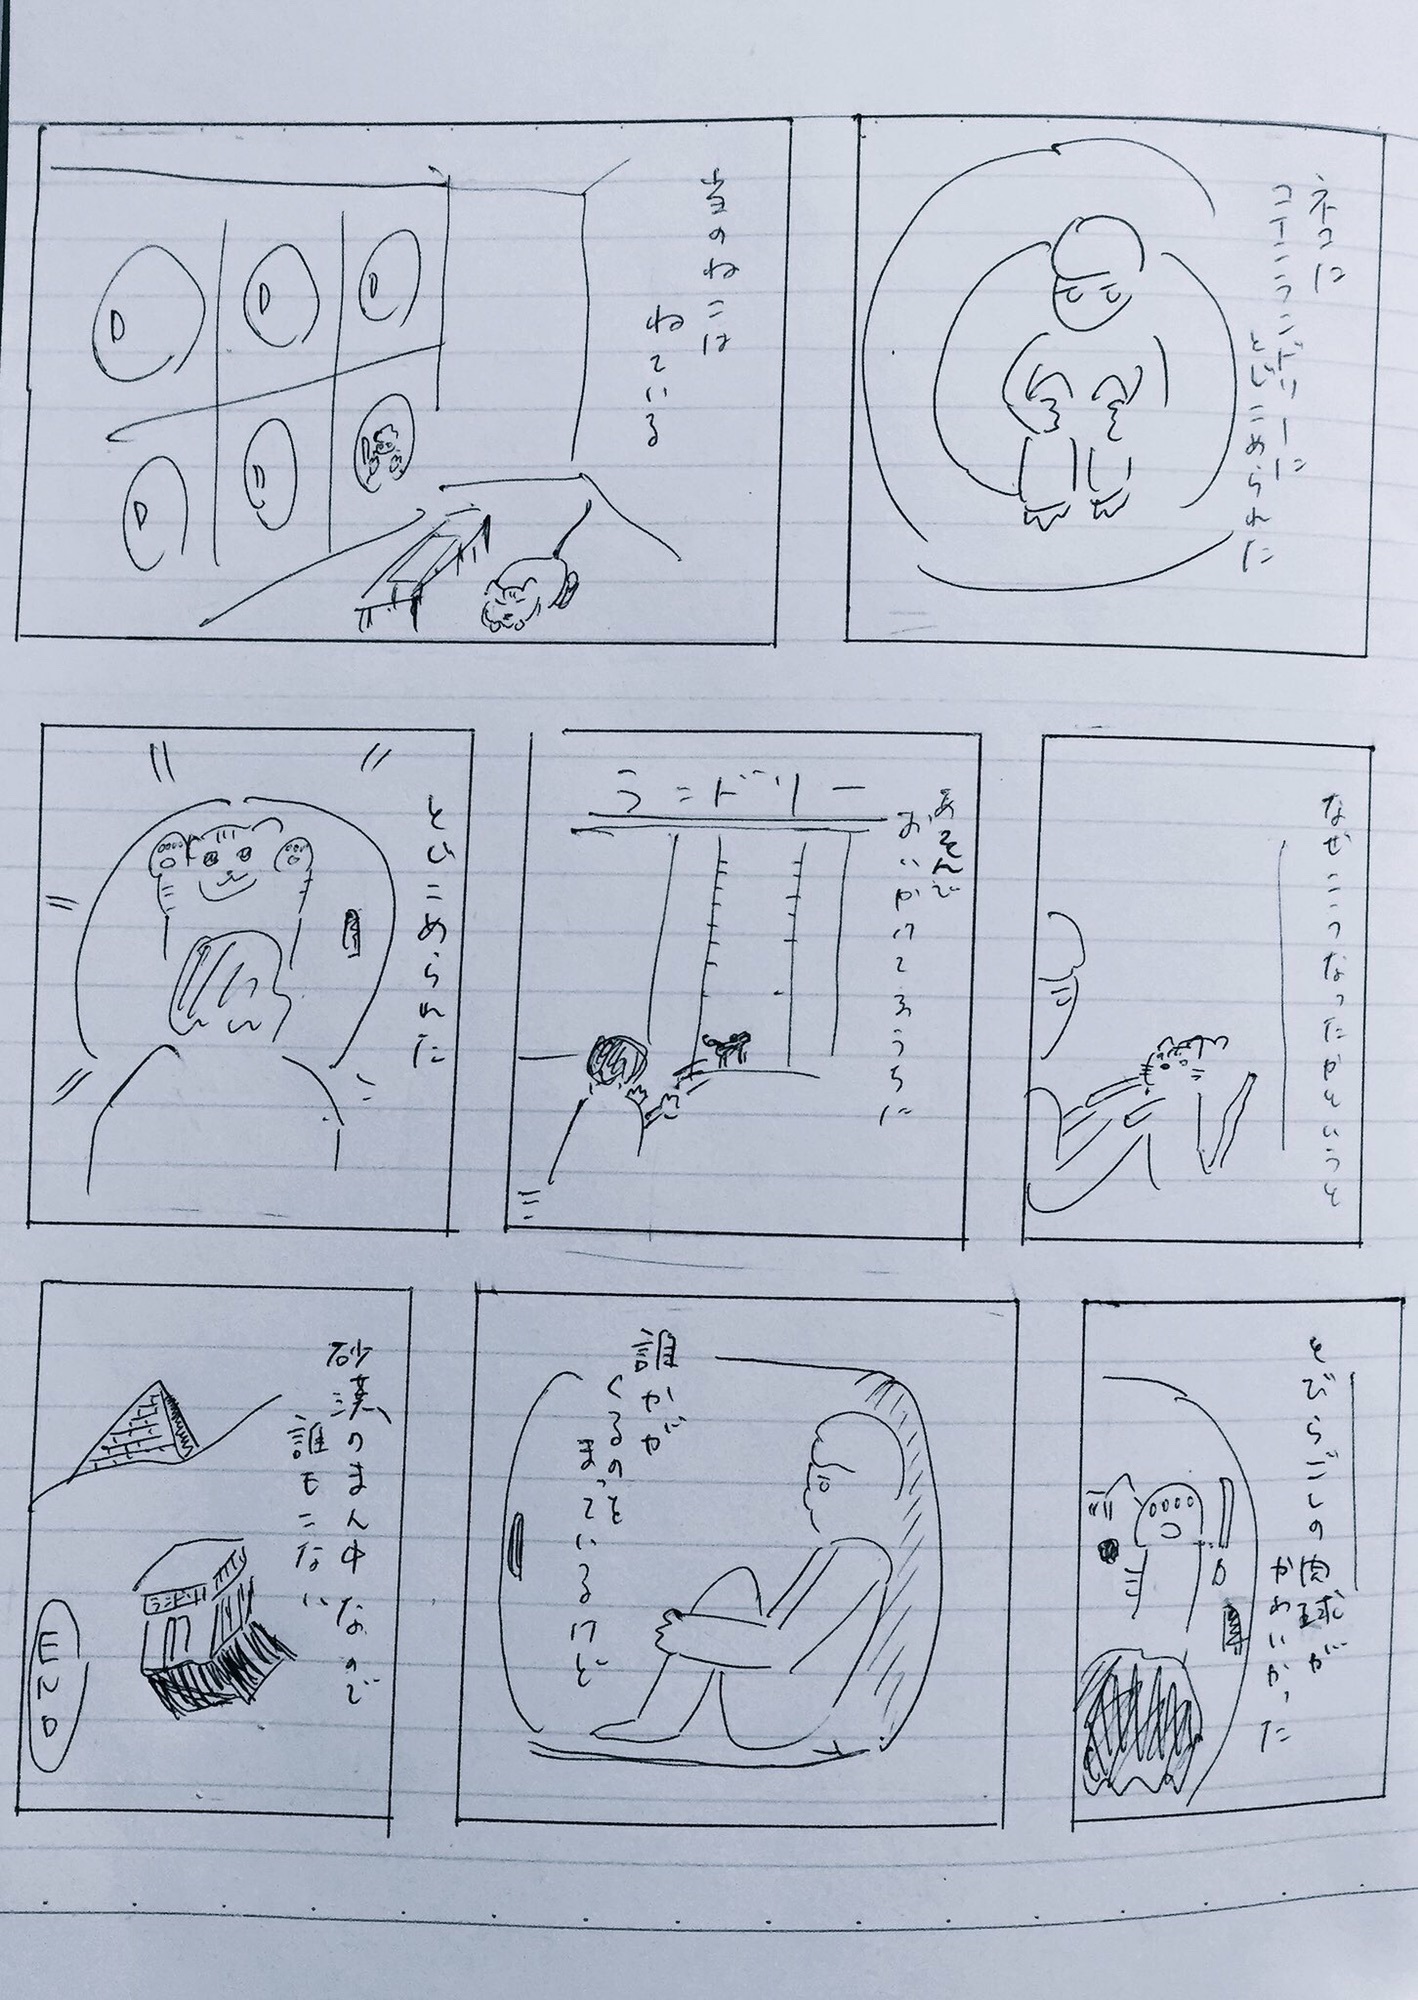 ネコに
コインランドリーに
とじこめられた
当のねこは
ねている
なぜこうなったかというと
あそんで
おいかけてるうちに
ランドリー
とじこめられた
とびらごしの肉球が
かわいかった
誰かが
くるのを
まっているけど
砂漠のまん中なので
誰もこない
ランドリー
END